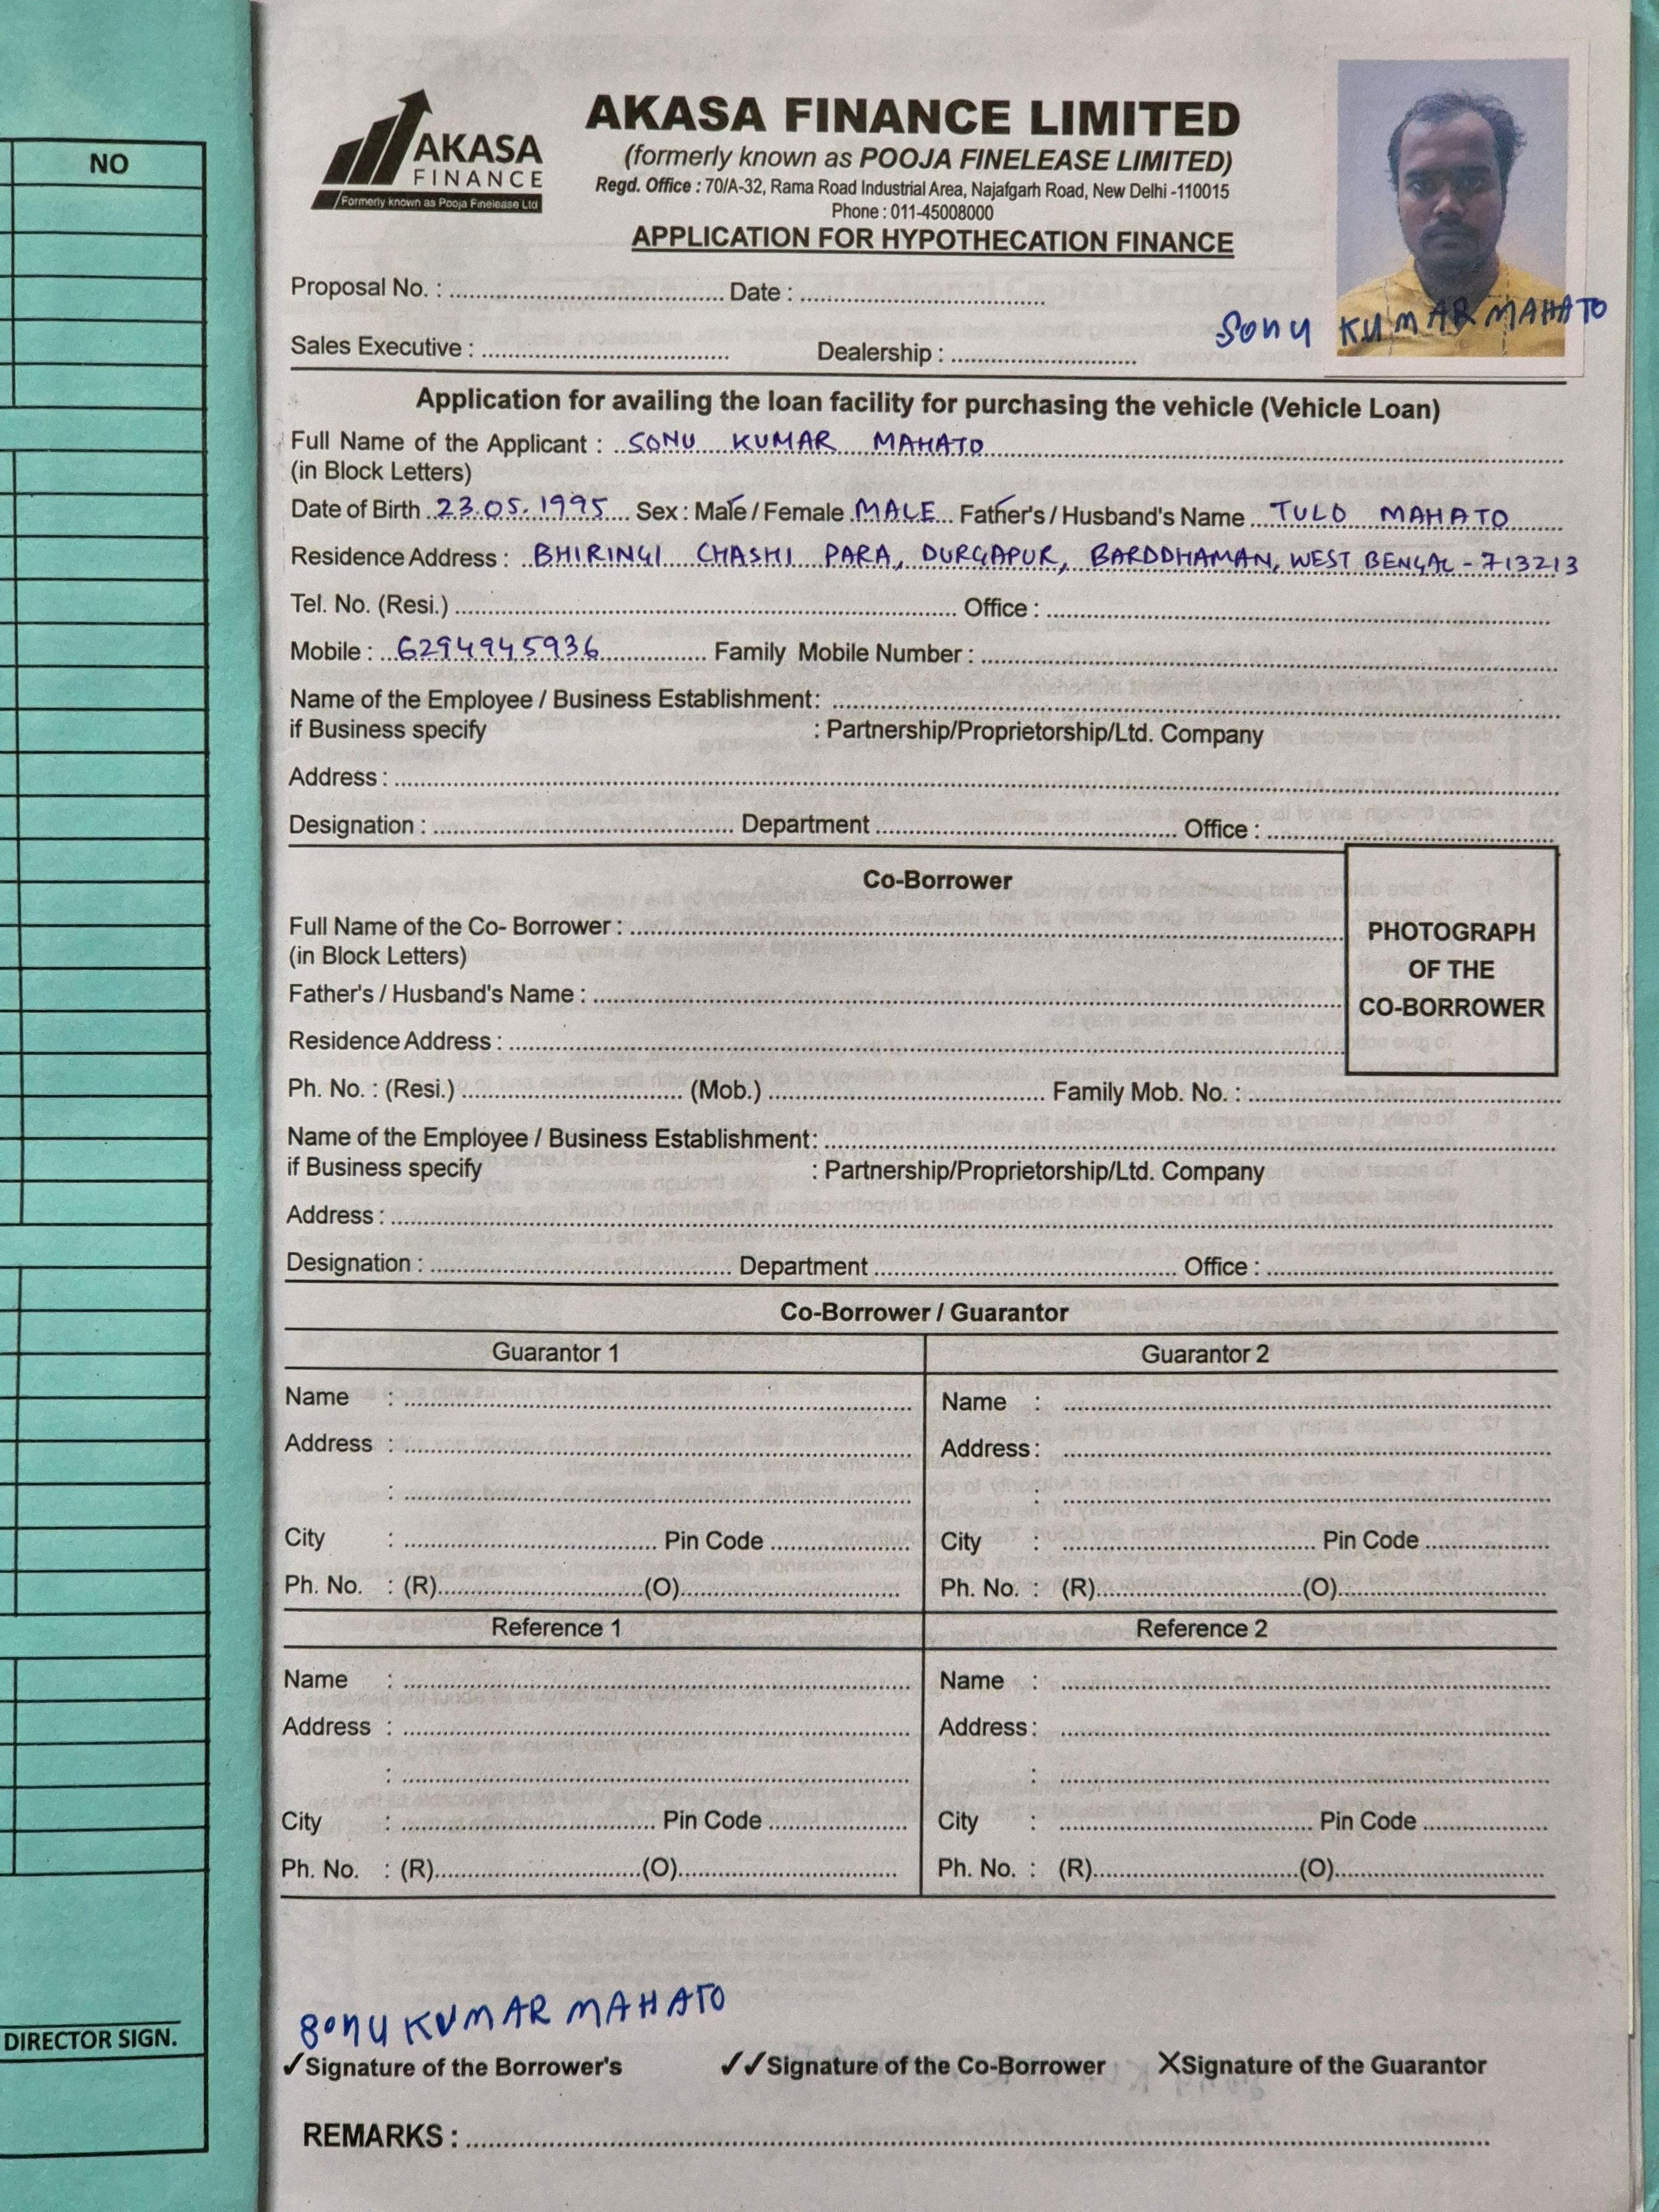 NO
AKASA
FINANCE
Formerly known as Pooja Finelease Ltd
AKASA FINANCE LIMITED
(formerly known as POOJA FINELEASE LIMITED)
Regd. Office : 70/A-32, Rama Road Industrial Area, Najafgarh Road, New Delhi -110015
Phone : 011-45008000
APPLICATION FOR HYPOTHECATION FINANCE
Proposal No. : Date :
Sonu KUMAR MAHATO
Sales Executive : Dealership :
Application for availing the loan facility for purchasing the vehicle (Vehicle Loan)
Full Name of the Applicant : SONU KUMAR MAHATO
(in Block Letters)
Date of Birth 23.05.1995 Sex : Male / Female MALE Father's / Husband's Name TULO MAHATO
Residence Address : BHIRINGI CHASHI PARA, DURGAPUR, BARDDHAMAN, WEST BENGAL - 713213
Tel. No. (Resi.) Office :
Mobile : 6294945936 Family Mobile Number :
Name of the Employee / Business Establishment:
if Business specify : Partnership/Proprietorship/Ltd. Company
Address :
Designation : Department Office :
Co-Borrower
Full Name of the Co- Borrower :
(in Block Letters)
PHOTOGRAPH
OF THE
CO-BORROWER
Father's / Husband's Name :
Residence Address :
Ph. No. : (Resi.) (Mob.) Family Mob. No. :
Name of the Employee / Business Establishment:
if Business specify : Partnership/Proprietorship/Ltd. Company
Address :
Designation : Department Office :
Co-Borrower / Guarantor
Guarantor 1 Guarantor 2
Name : Name :
Address : Address :
: :
City : Pin Code City : Pin Code
Ph. No. : (R) (O) Ph. No. : (R) (O)
Reference 1 Reference 2
Name : Name :
Address : Address :
: :
City : Pin Code City : Pin Code
Ph. No. : (R) (O) Ph. No. : (R) (O)
Sonu KUMAR MAHATO
DIRECTOR SIGN.
✓Signature of the Borrower's ✓✓Signature of the Co-Borrower XSignature of the Guarantor
REMARKS :